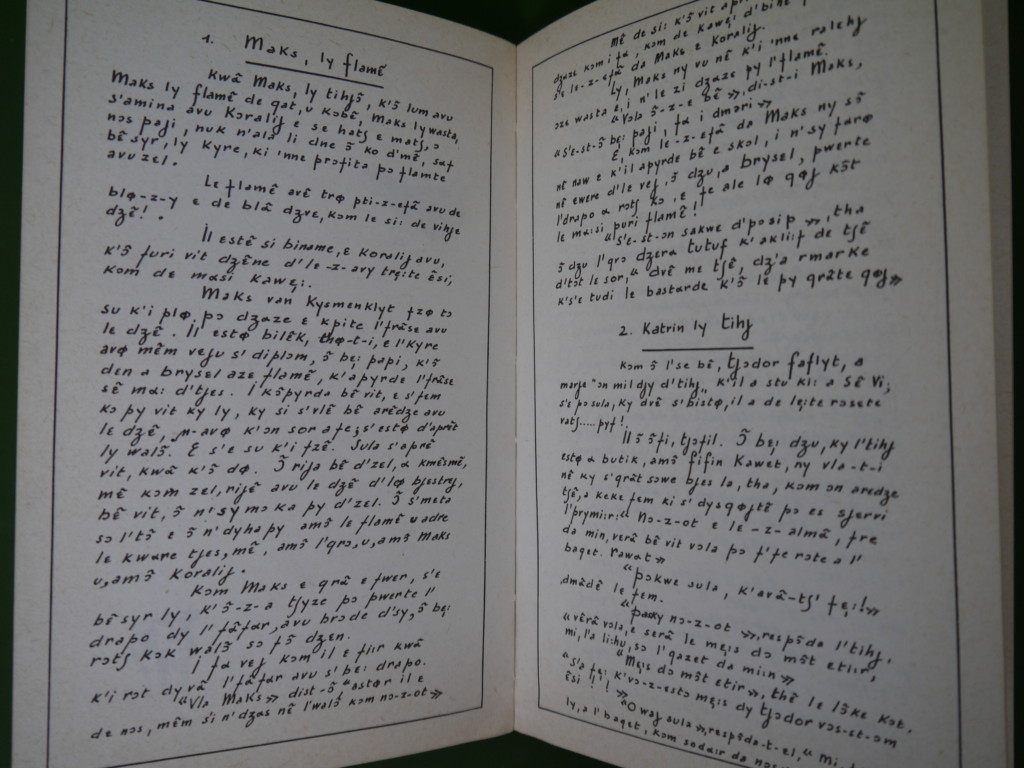 1. Maks, ly flamẽ
Kwã Maks, ly tihʃɔ̃, k'ɔ̃ lumavu
Maks ly flamẽ de gat, u kɔbẽ, Maks ly wastə,
s'amina avu Kɔralij e se hatʃ e matʃ, ɔ
nɔs paji, nuk n'ala li dne ɔ̃ kɔ d'mẽ, saf
bẽ syr, ly Kyre, ki 'nne prɔfita pɔ flamte
avu zel.
Le flamẽ avẽ trɔp pti-z-efã avu de
blø-z-y e de blã dʒve, kɔm le sii: de vihje
dʒẽ!.
Il estẽ si biname, e Kɔralij avu,
k'ɔ̃ furi vit dʒẽne d'le-z-avy trẹite ẽsi,
kɔm de masi kawẹ:.
Maks van Kysmenklyt fzø tɔ
su k'i plø, pɔ dʒaze e kpite l'frãse avu
le dʒẽ. Il estø bilẽk, thø-t-i, e l'Kyre
avø mẽm veju s' diplɔm, ɔ̃ bẹ: papi, k'ɔ̃
den a brysel aze flamẽ, k'apyrde l'frãse
sẽ ma: d'tjes. I kɔ̃pyrda bẽ vit, e s'fem
kɔ py vit ky ly, ky si s'vlẽ bẽ arẽdʒe avu
le dʒẽ,
ly walɔ̃. E s'e su k'i fzẽ. Sula s'aprẽ
vit, kwã k'ɔ̃ dø. Ɔ̃ rija bẽ d'zel, a kmẽsmẽ,
mẽ kɔm zel, rijẽ avu le dʒẽ d'lø bjestrij,
bẽ vit, ɔ̃ n'symɔka py d'zel. Ɔ̃ s'meta
sɔ l'tɔ̃ e ɔ̃ n'dyhapy amɔ̃ le flamẽ vadre
le kware tjes, mẽ, amɔ̃ l'grɔ, u, amɔ̃ Maks
u, amɔ̃ Kɔralij.
Kɔm Maks e grã e fwer, s'e
bẽ syr ly, k'ɔ̃-z-a tʃyze pɔ pwerte l'
drapo dy l' fãfar, avu brɔde d'sy, ɔ̃ bẹ:
rɔtʃ kɔk walɔ̃ sɔ fɔ̃ dʒen.
I fa vej kɔm il e fiir kwã
k'i rɔt dyvã l' fãfar avu s'bẹ: drapo.
“Vla Maks» dist-ɔ̃ “astør il e
de nɔs, mẽm si n'dʒas nẽ l'walɔ̃ kɔm nɔ-z-ot»
dʒaze kɔm i fa, kɔm de kawẹ: d'bihe
se le-z-efã da Maks e Kɔralij.
Ly, Maks ny vu nẽ k'i 'nne ralehj
ɔze wastə e, i n'le zi dʒaze py l'flamẽ.
“Vola ɔ̃-z-e bẽ», di-st-i Maks,
“S'e-st-ɔ̃ bẹ: paji, fa i dmɔri»
E, kɔm le-z-efã da Maks ny sɔ̃
nẽ naw e k'il apyrde bẽ e skɔl, i n'sy farø
nẽ ewere d'le vej, ɔ̃ dʒu, a brysel, pwerte
l'drapo a rɔtʃ kɔ, e fe ale lø gøj kɔ̃t
le ma:si puri flamẽ!
“S'e-st-ɔn sakwe d'pɔsip», tha
ɔ̃ dʒu l'grɔ dʒera tutuf k'akli:f de tʃẽ
d'tɔt le sor, “dvẽ me tʃẽ, dʒ'a rmarke
k's'e tudi le bastarde k'ɔ̃ le py grãte gøj»
2. Katrin ly tihʃ
kɔm ɔ̃ l'se bẽ, tʃɔdor faflyt, a
marje “ɔn mil djy d'tihʃ„ k'il a stu ki: a Sẽ Vi;
s'e pɔ sula, ky dvẽ s'bistø, il a de lẹite rɔsete
vatʃ.....pyf!.
Il ɔ̃ ɔ̃ fi, tʃɔfil. Ɔ̃ bẹ: dʒu, ky l'tihʃ
estø a butik, amɔ̃ fifin Kawet, ny vla-t-i
nẽ ky s'grãt sowe bjes la, tha, kɔm ɔn aredʒe
tʃẽ, a keke fem ki s'dysgøjtẽ pɔ es sjervi
l'prymi:r: “Nɔ-z-ot e le-z-almã, fre
da min, verã bẽ vit vɔla pɔ f'fe rɔte a l'
baget. rawat»
“pɔkwe sula, k'avã-tʃ' fẹ:!»
dmãdẽ le fem.
“paəky nɔ-z-ot», respɔ̃da l'tihʃ,
“vẽrã vɔla, e serã le mẹis dɔ mɔ̃t etiir,
mi, l'a lihu, sɔ l'gazet da miin»
“Mẹis dɔ mɔ̃t etir», thẽ le lɔ̃ke kɔt,
“S'a fẹ: k'vɔ-z-estɔ mẹis dy tʃɔdor vɔs-st-ɔm
ẽsi!!!»
“O waj sula», respɔ̃da-t-el,
ly, a l'baget, kɔm